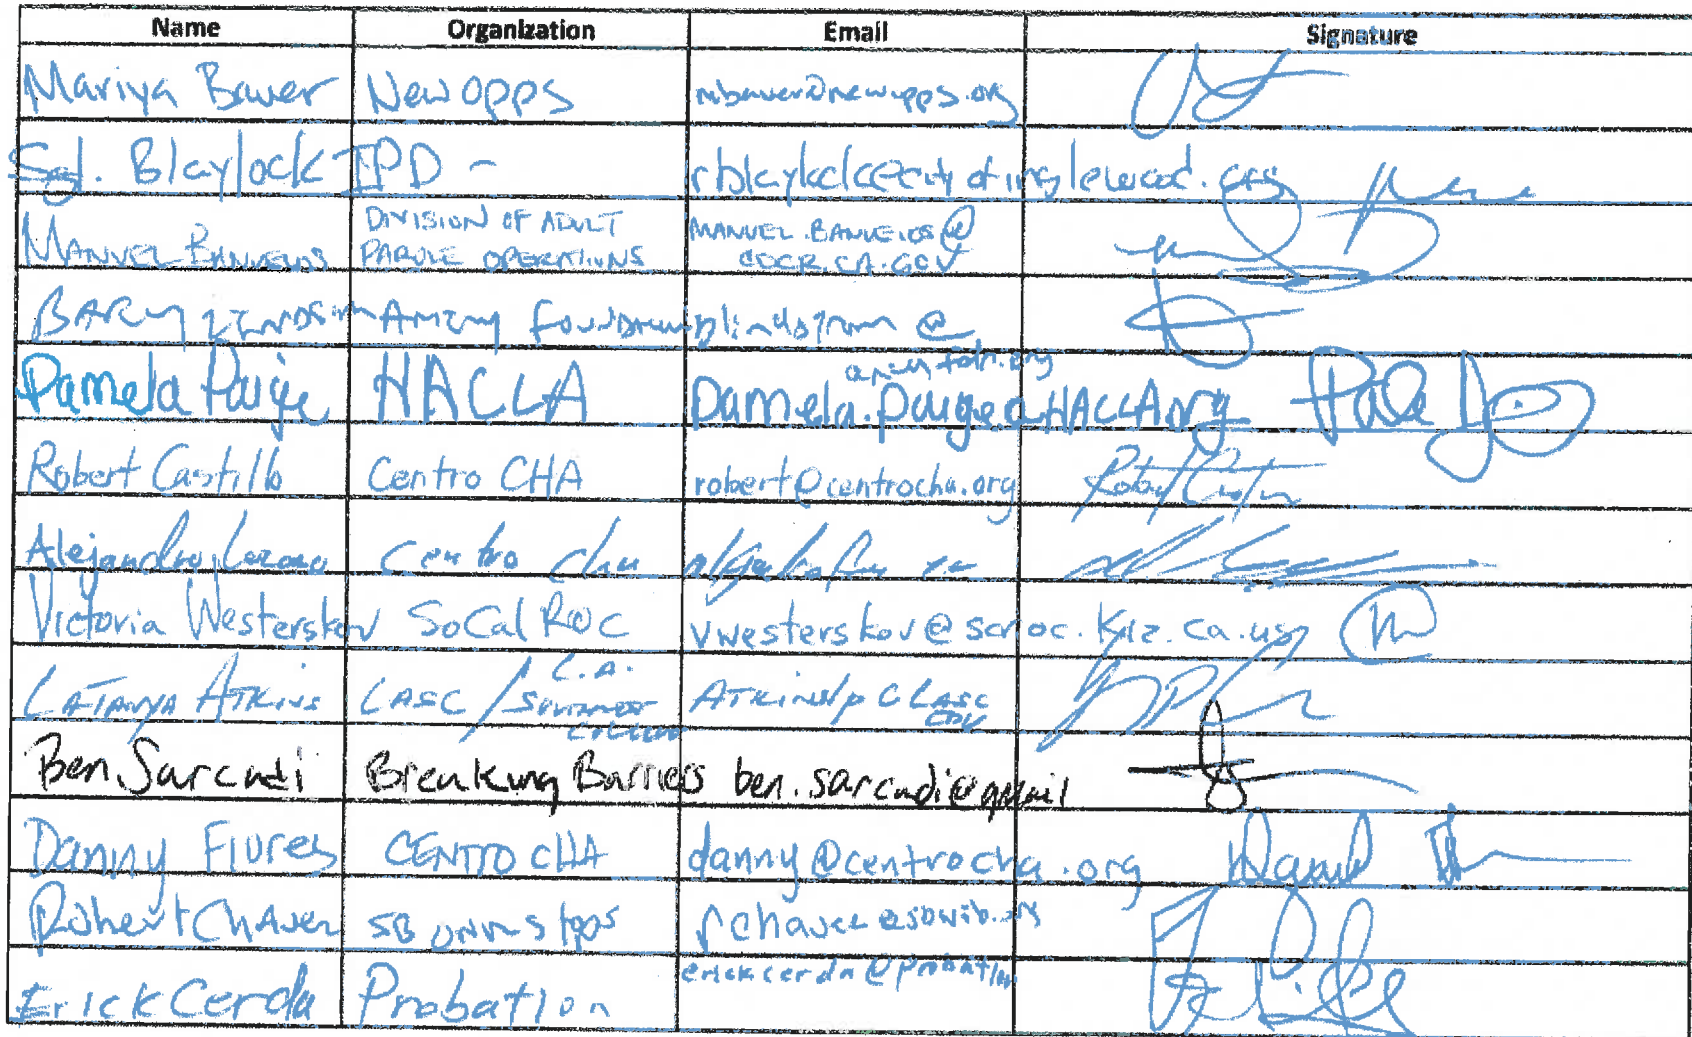 Name Organization Email Signature
Mariya Bauer New Opps mbauer@newopps.org
Sgt. Blaylock IPD - rblaylock@cityofinglewood.org
MANUEL BANUELOS DIVISION OF ADULT PAROLE OPERATIONS MANUEL.BANUELOS@ CDCR.CA.GOV
BARRY LINDSTROM AMITY FOUNDATION blindstrom@ amityfdn.org
Pamela Paige HACLA Pamela.paige@HACLA.org
Robert Castillo Centro CHA robert@centrocha.org
Alejandro Lozano Centro cha
Victoria Westerskov SoCal ROC vwesterskov@scroc.k12.ca.us
LATANYA ATKINS LASC / L.A. SOUTHWEST COLLEGE ATKINSLP@LASC EDU
Ben Sarcadi Breaking Barriers ben.sarcadi@gmail
Danny Flores CENTRO CHA danny@centrocha.org
Robert Chavez SB rchavez@sbwib.org
Erick Cerda Probation erickcerda@probation